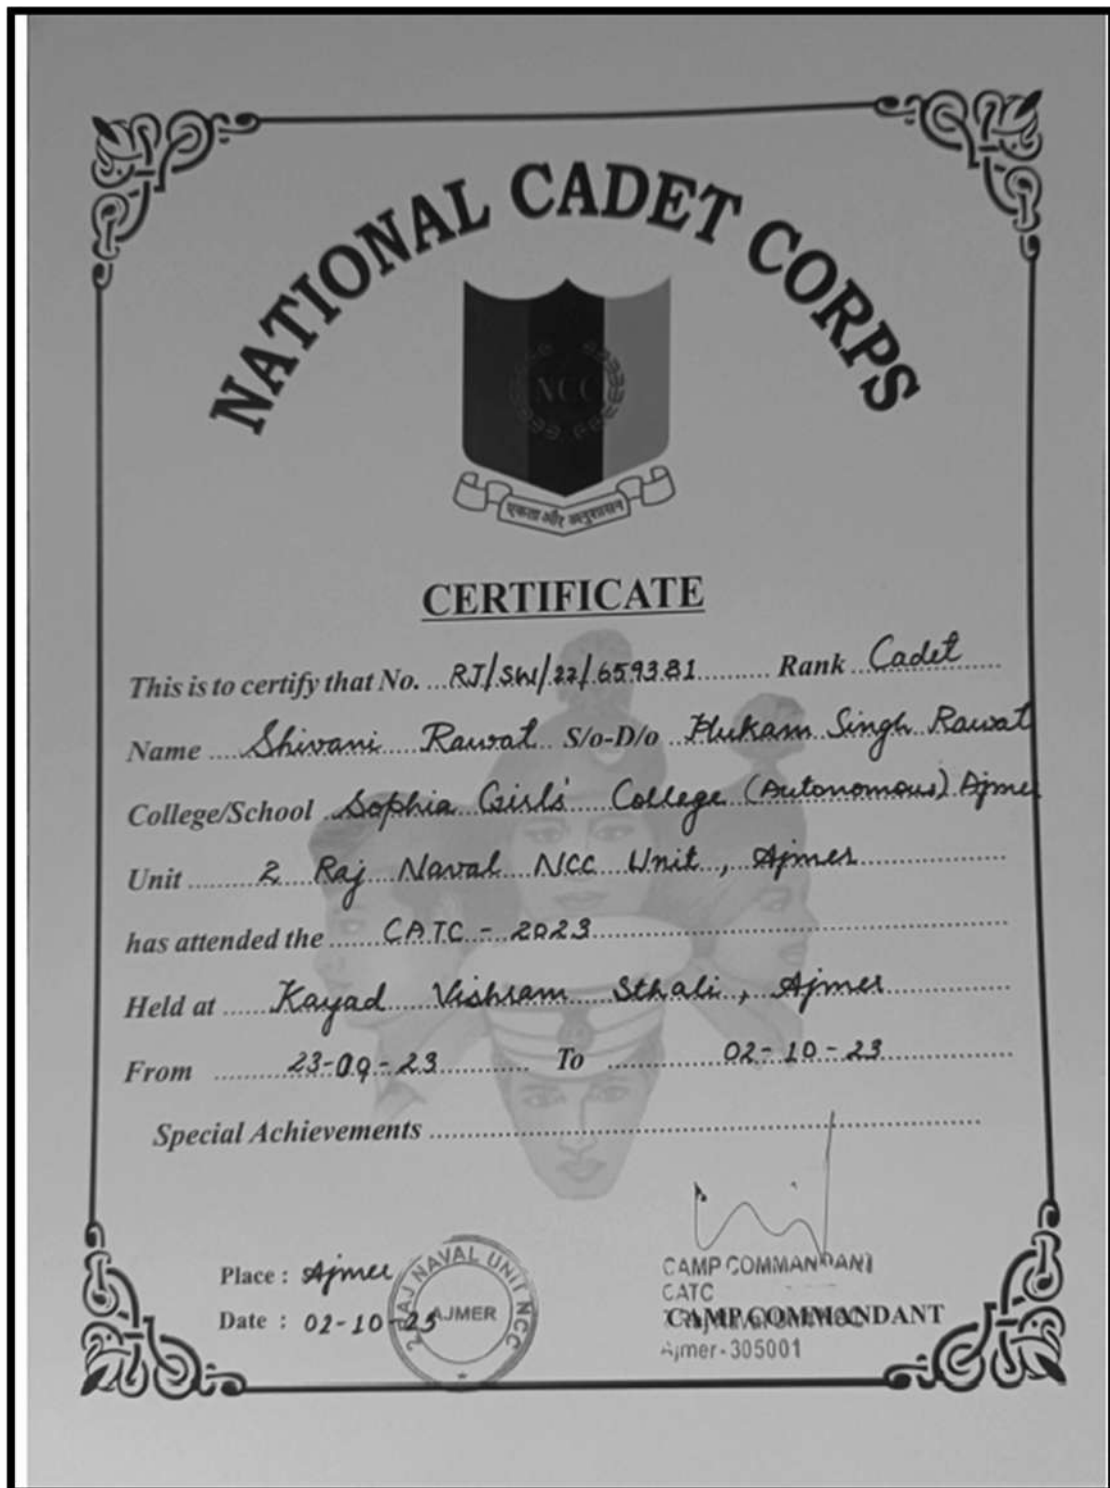 NATIONAL CADET CORPS
NCC
एकता और अनुशासन
CERTIFICATE
This is to certify that No. RJ/SW/22/659381 Rank Cadet
Name Shivani Rawat S/o-D/o Hukam Singh Rawat
College/School Sophia Girls' College (Autonomous) Ajmer
Unit 2 Raj Naval NCC Unit, Ajmer
has attended the CATC - 2023
Held at Kayad Vishram Sthali, Ajmer
From 23-09-23 To 02-10-23
Special Achievements
Place : Ajmer
Date : 02-10-23
2 RAJ NAVAL UNIT NCC
AJMER
CAMP COMMANDANT
CATC
CAMP COMMANDANT
Ajmer-305001